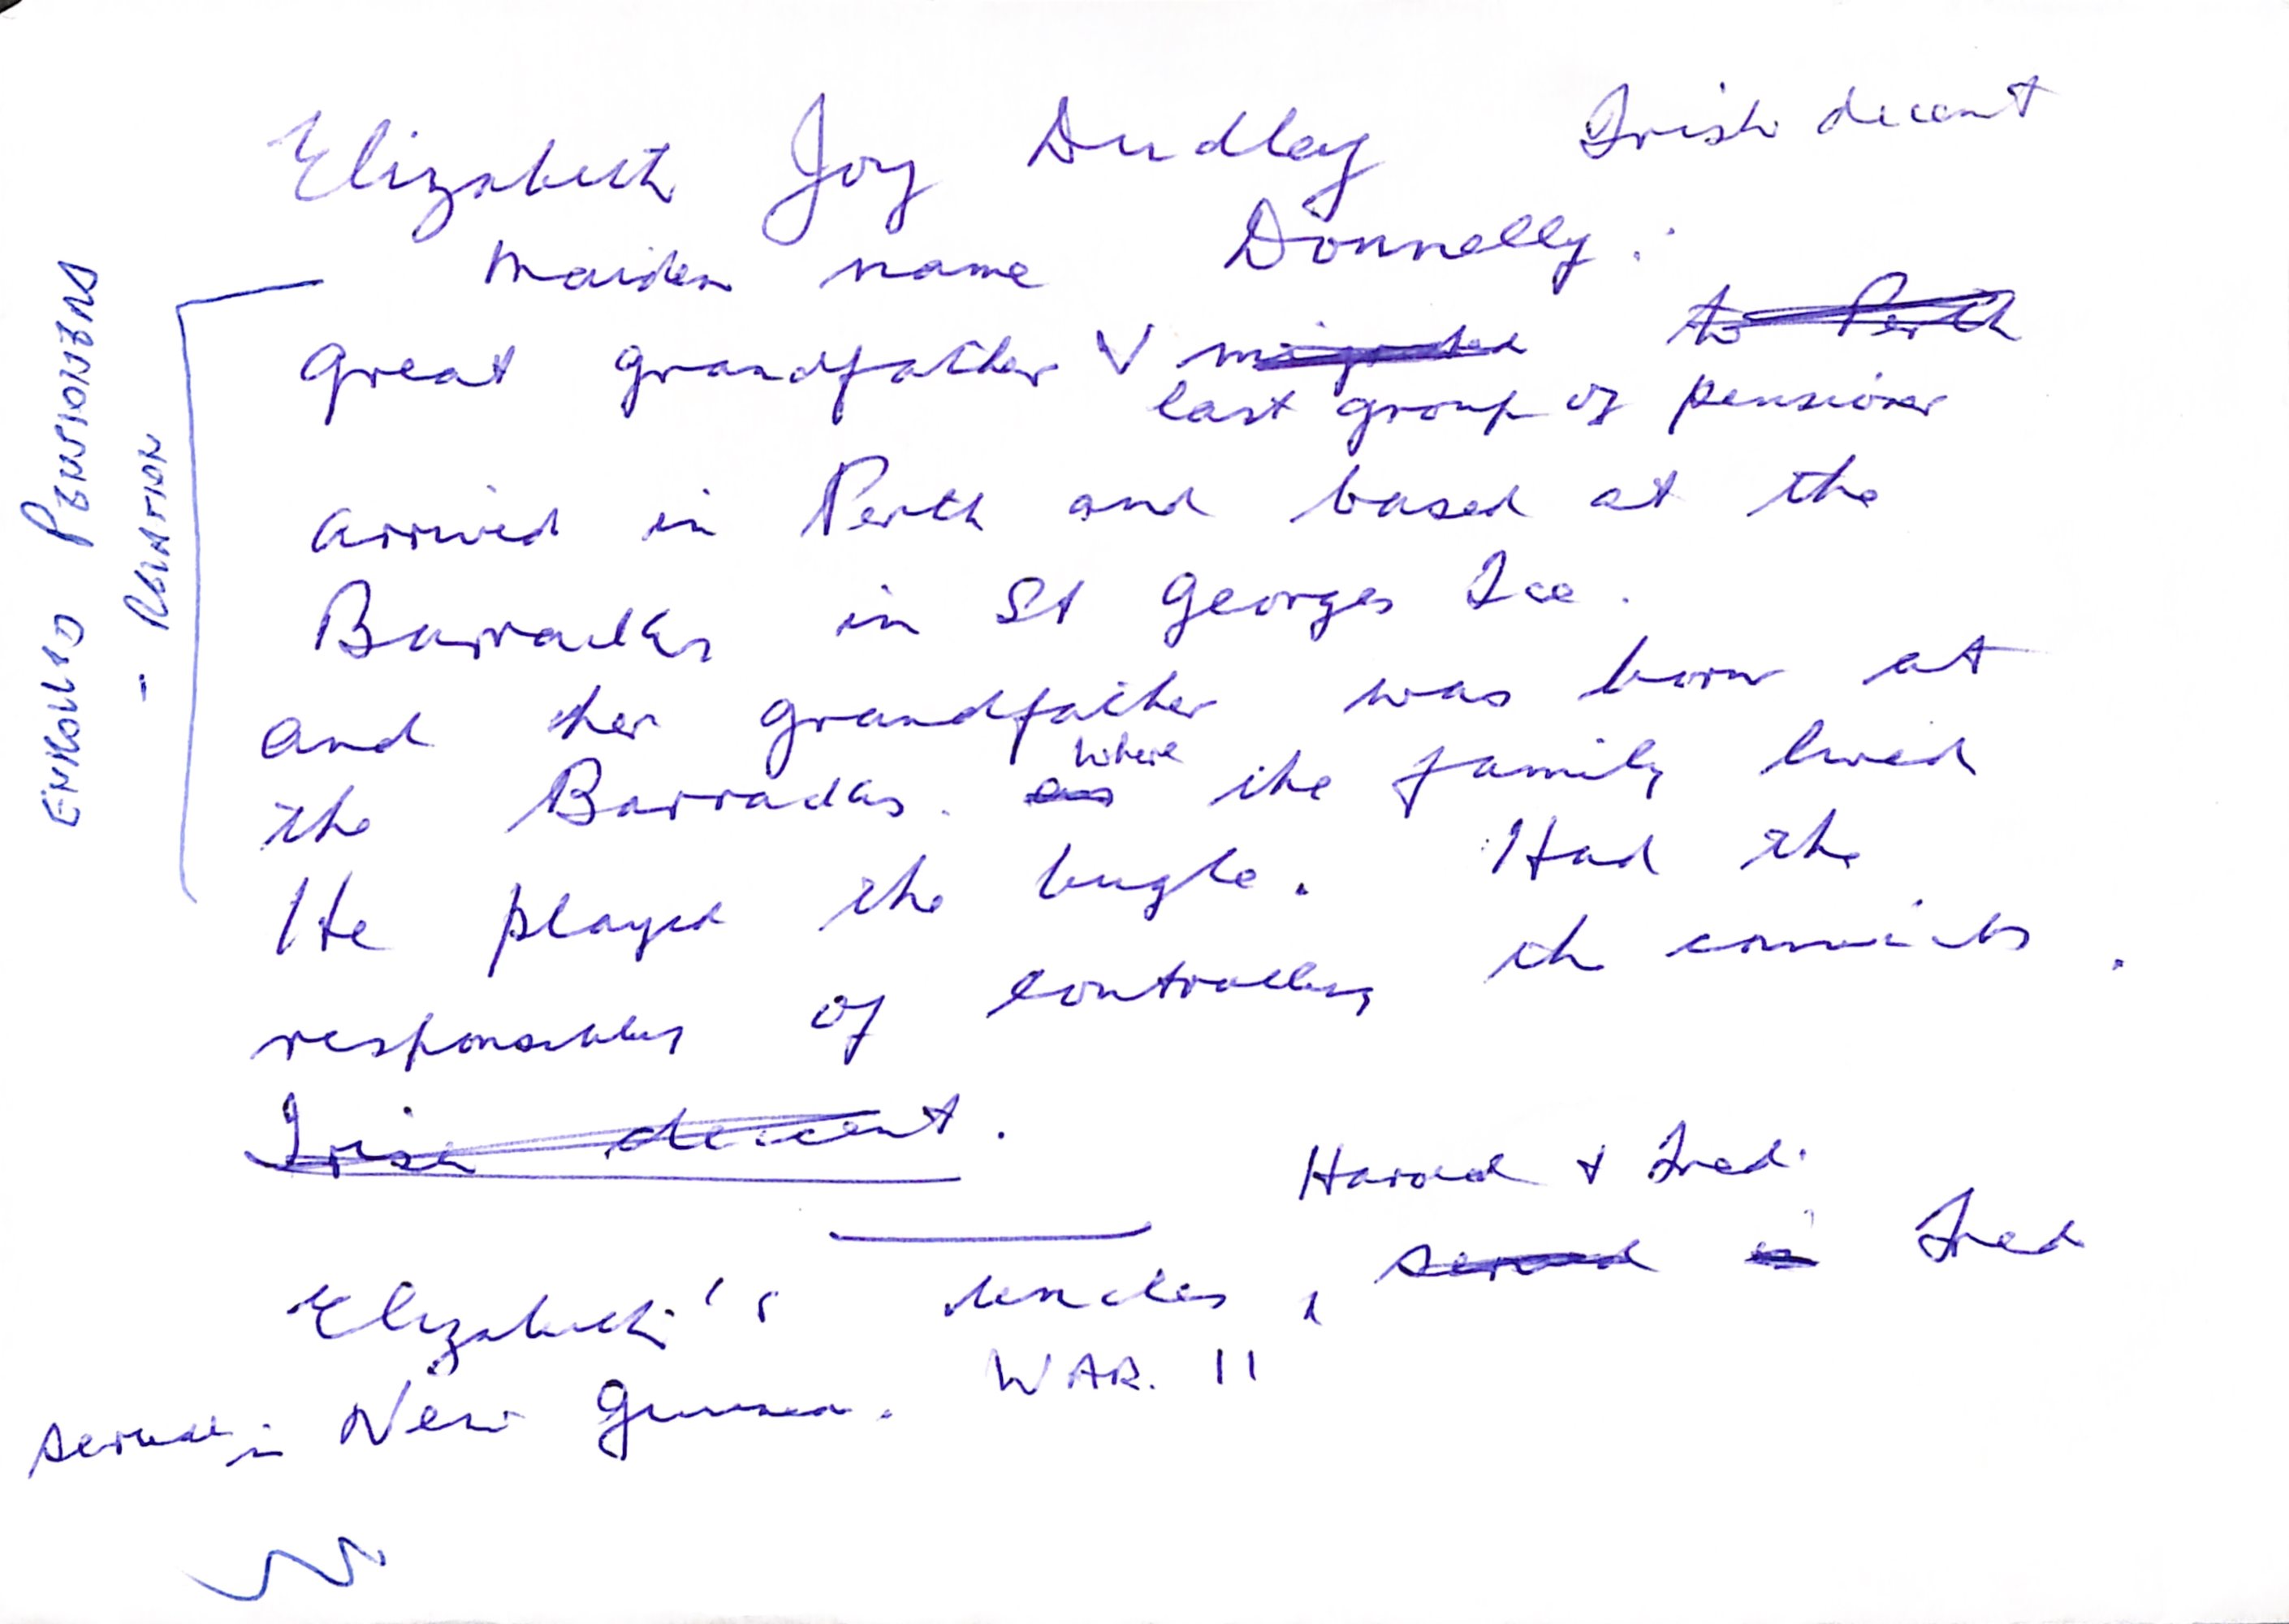 Elizabeth Joy Dudley Irish decent
Maiden name Donnelly.
great grandfather V migrated to Perth
last group of pensioner
arrived in Perth and based at the
Barracks in St Georges Tce.
and her grandfather was born at
where
the Barracks. as the family lived
He played the bugle. Had the
of controlling the convicts.
Irish descent.
Harold + Fred.
Elizabeth's uncles, served in Fred
served in New Guinea. WAR. II
ENROLLED PENSIONERS
- RELATION